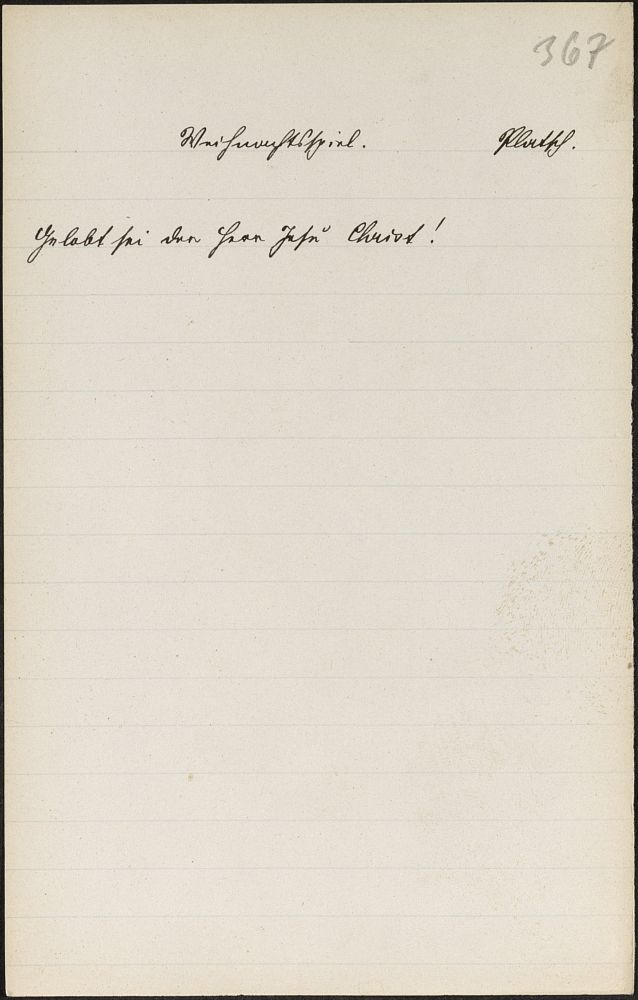 367
Weihnachtsspiel. Platsch.
Gelobt sei der Herr Jesu Christ!